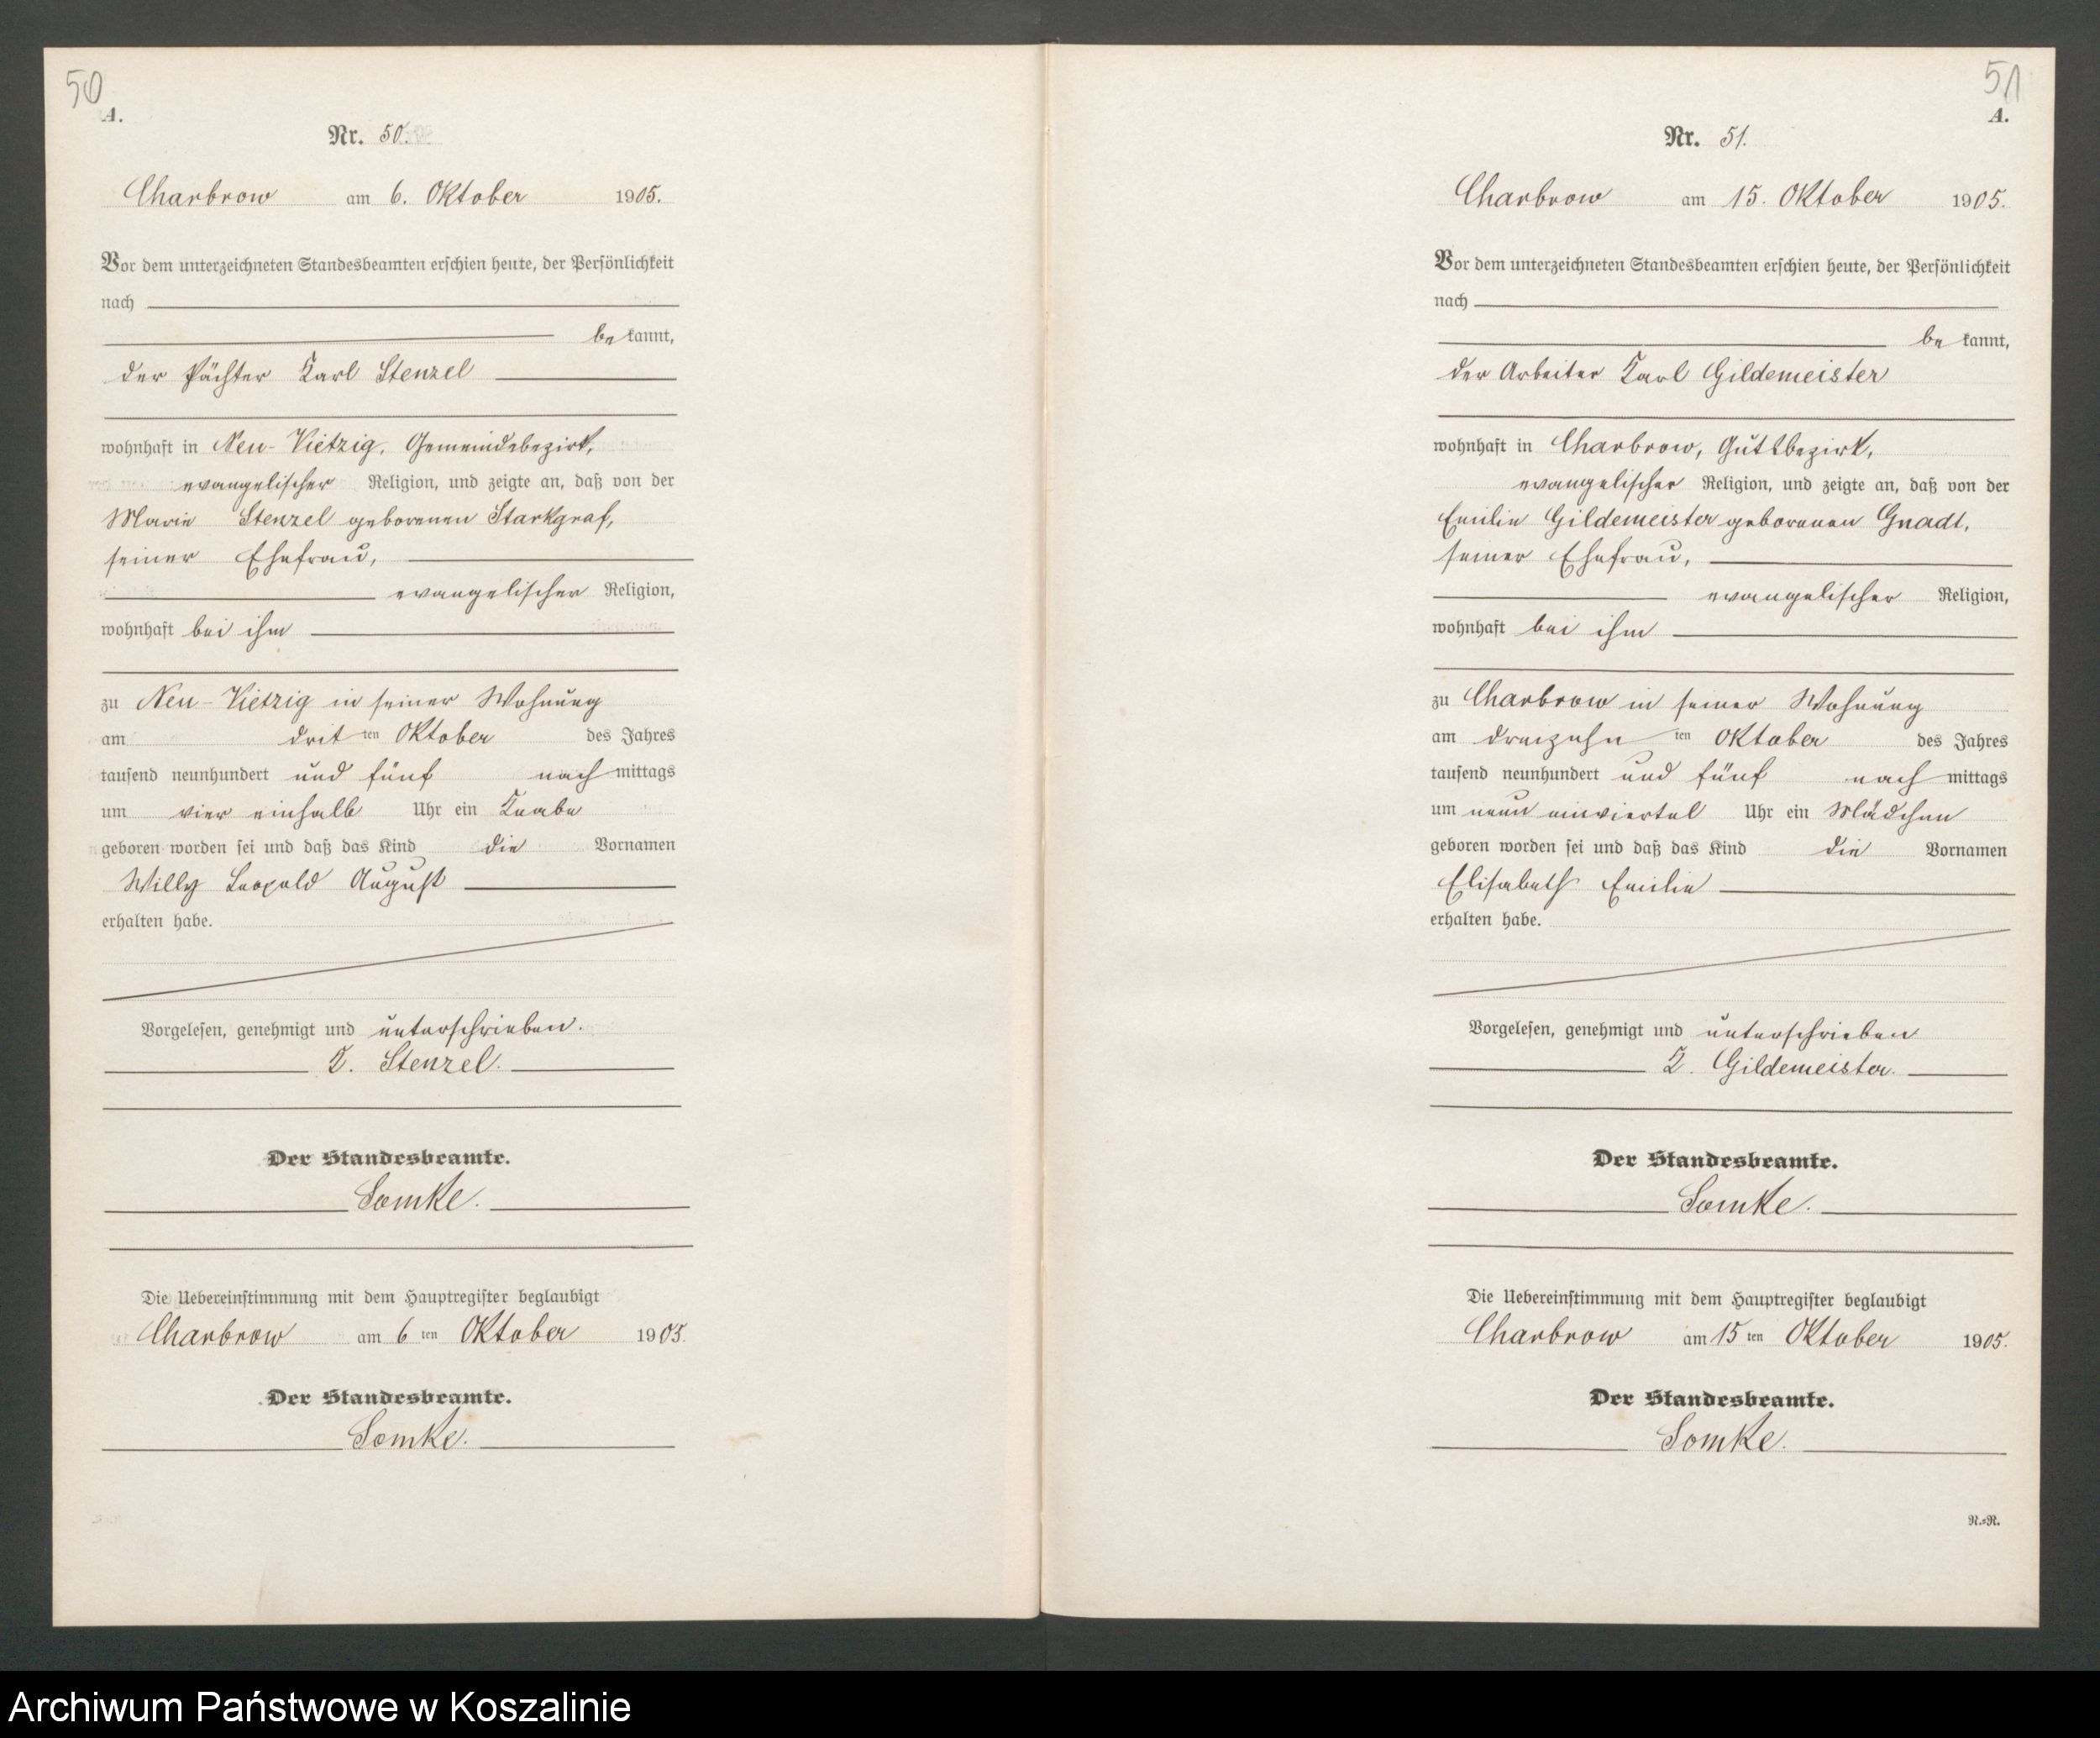 50
A.
Nr. 50.
Charbrow am 6. Oktober 1905.
Vor dem unterzeichneten Standesbeamten erschien heute, der Persönlichkeit
nach
be kannt,
der Pächter Karl Stenzel
wohnhaft in Neu-Vietzig, Gemeindebezirk,
evangelischer Religion, und zeigte an, daß von der
Marie Stenzel geborenen Starkgraf,
seiner Ehefrau,
evangelischer Religion,
wohnhaft bei ihm
zu Neu-Vietzig in seiner Wohnung
am drit ten Oktober des Jahres
tausend neunhundert und fünf nach mittags
um vier einhalb Uhr ein Knabe
geboren worden sei und daß das Kind die Vornamen
Willy Leopold August
erhalten habe.
Vorgelesen, genehmigt und unterschrieben.
K. Stenzel.
Der Standesbeamte.
Lomke.
Die Uebereinstimmung mit dem Hauptregister beglaubigt
Charbrow am 6 ten Oktober 1905.
Der Standesbeamte.
Lomke.
51
A.
Nr. 51.
Charbrow am 15. Oktober 1905.
Vor dem unterzeichneten Standesbeamten erschien heute, der Persönlichkeit
nach
be kannt,
der Arbeiter Karl Gildemeister
wohnhaft in Charbrow, Gutsbezirk,
evangelischer Religion, und zeigte an, daß von der
Emilie Gildemeister geborenen Gnadt,
seiner Ehefrau,
evangelischer Religion,
wohnhaft bei ihm
zu Charbrow in seiner Wohnung
am dreizehn ten Oktober des Jahres
tausend neunhundert und fünf nach mittags
um neun einviertel Uhr ein Mädchen
geboren worden sei und daß das Kind die Vornamen
Elisabeth Emilie
erhalten habe.
Vorgelesen, genehmigt und unterschrieben
K. Gildemeister.
Der Standesbeamte.
Lomke.
Die Uebereinstimmung mit dem Hauptregister beglaubigt
Charbrow am 15 ten Oktober 1905.
Der Standesbeamte.
Lomke.
N.=R.
Archiwum Państwowe w Koszalinie